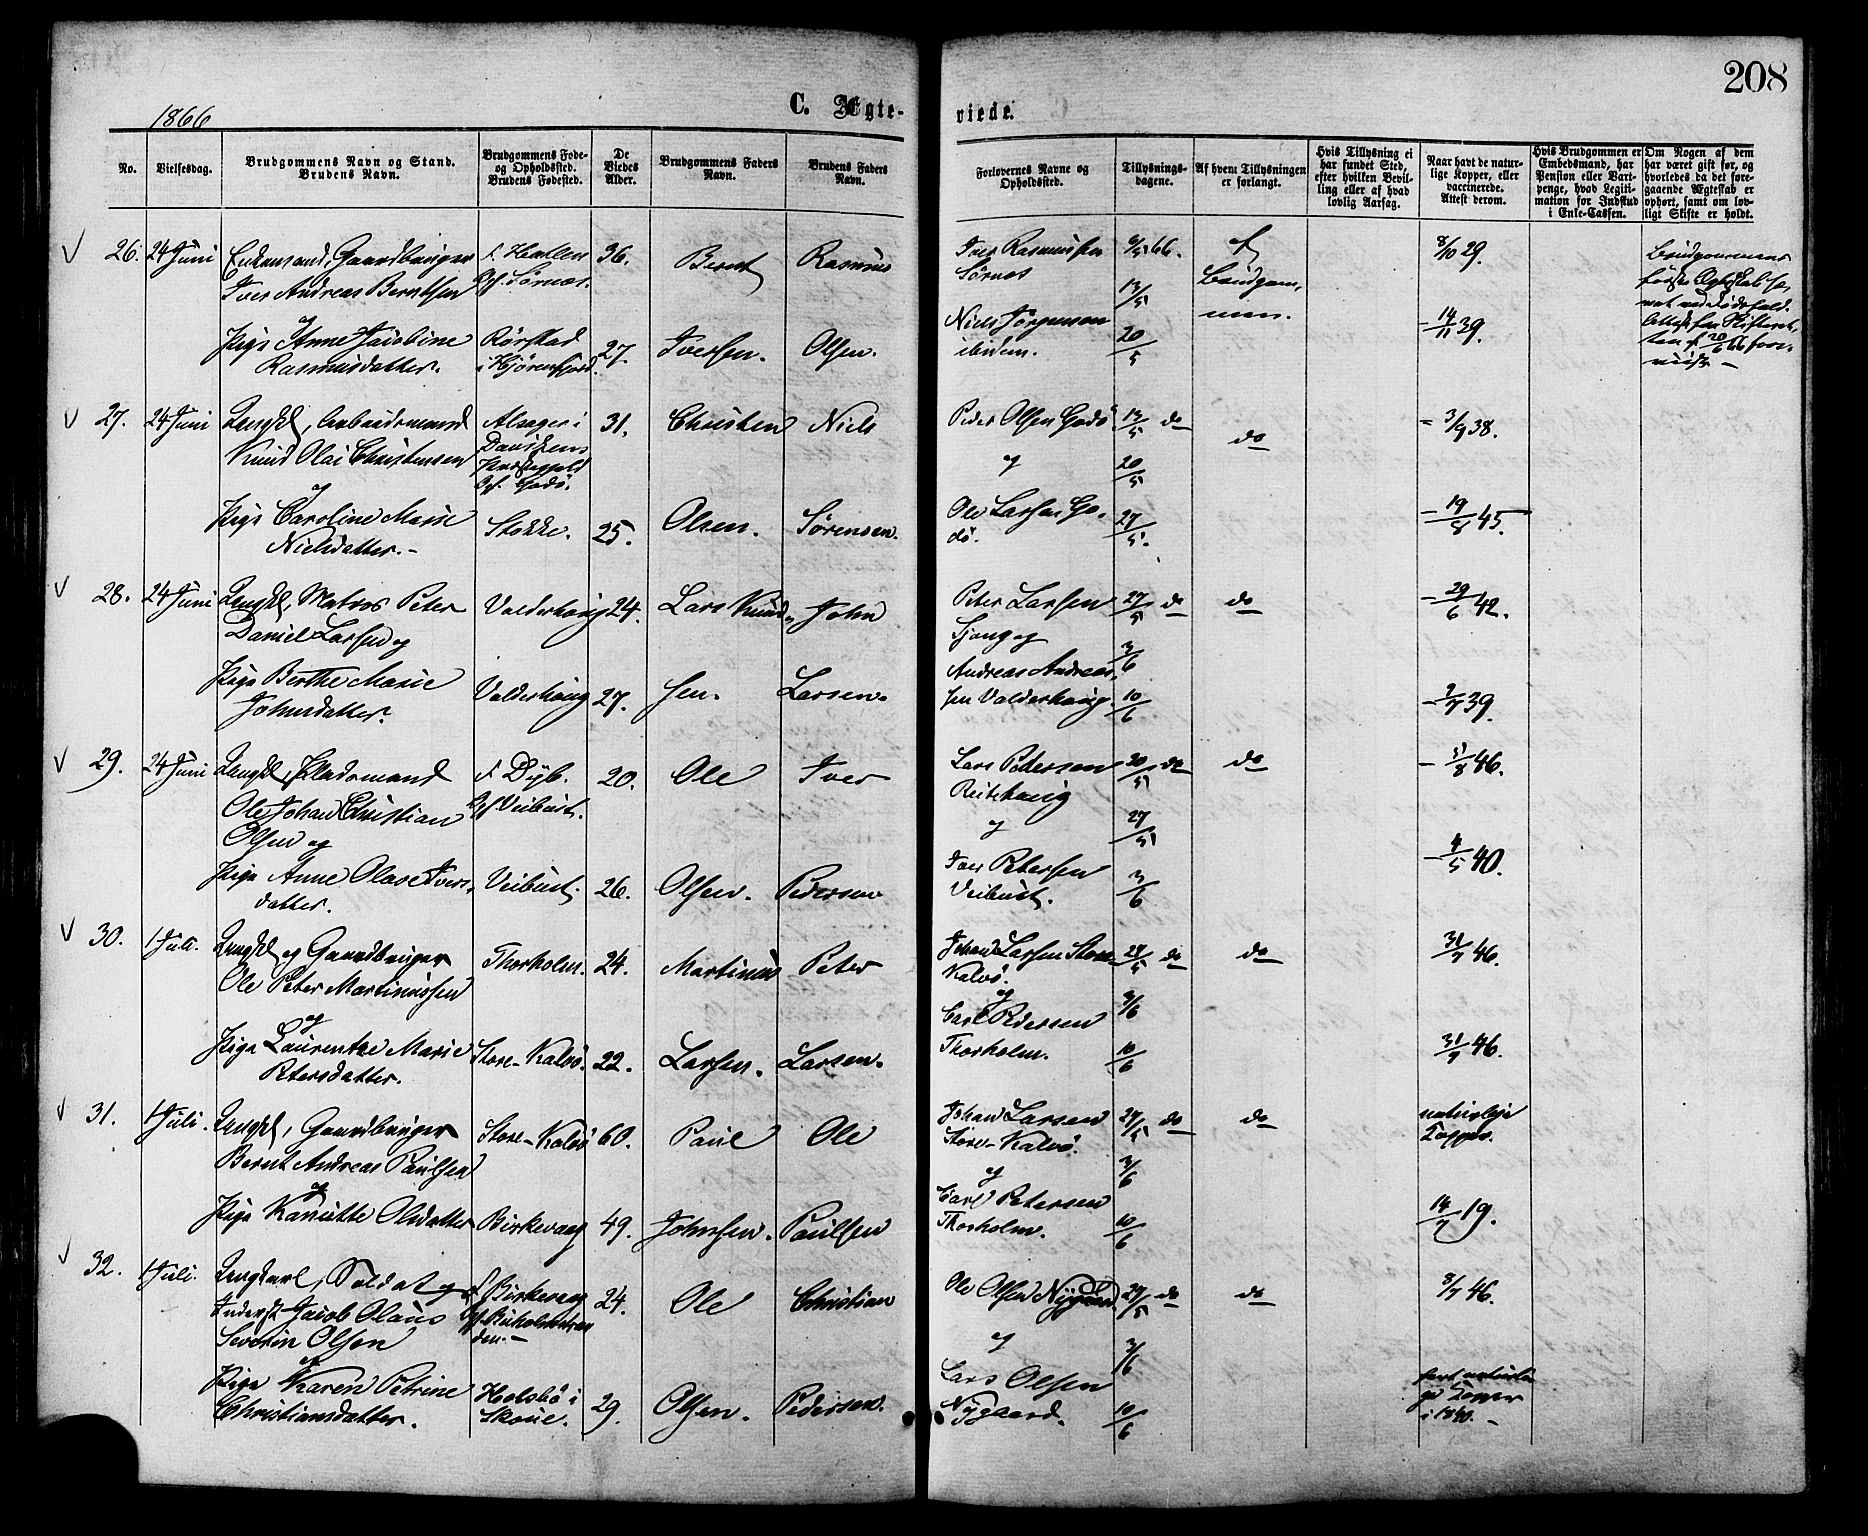 208
1866
C. Ægte-
viede.
No.
Vielsesdag.
Brudgommens Navn og Stand.
Brudens Navn.
Brudgommens Føde-
og Opholdssted.
Brudens Fødested.
De
Viedes
Alder.
Brudgommens Faders
Navn.
Brudens Faders
Navn.
Forlovernes Navne og
Opholdssted.
Tillysnings-
dagene.
Af hvem Tillysningen
er forlangt.
Hvis Tillysning ei
har fundet Sted,
efter hvilken Bevil-
ling eller af hvad
lovlig Aarsag.
Naar havt de natur-
lige Kopper, eller
vaccinerede.
Attest derom.
Hvis Brudgommen er
Embedsmand, har
Pension eller Vart-
penge, hvad Legiti-
mation for Indskud
i Enke-Cassen.
Om Nogen af dem
har været gift før, og
hvorledes da det fore-
gaaende Ægteskab er
ophørt, samt om lov-
ligt Skifte er holdt.
26. 24 Juni Enkemand, Gaardbruger
Iver Andreas Berntsen
og
Pige Anne Jacobine
Rasmusdatter.
f. Hatlen
Opf. Sørnes.
Rørstad
i Hjørendfjord.
36.
27.
Bernt
Iversen.
Rasmus
Olsen.
Iver Rasmussen
Sørnes
Niels Jørgensen
ibidem.
6/5 66.
13/5
20/5
af
Brudgom,
men.
8/10 29.
14/11 39.
Brudgommens
første Ægteskab he,
vet ved Dødsfald.
Attest fra Skifteret,
ten af 20/6 66 fore-
viist –
27. 24 Juni Ungkl, Arbeidsmand
Knud Olai Christensen
og
Pige Caroline Marie
Nielsdatter. –
Alsager i
Davikens
Præstegjeld
Opf. Godø.
Stokke.
31.
25.
Christen
Olsen.
Niels
Sørensen.
Peder Olsen Godø
og
Ole Larsen Go-
dø.
13/5 do
20/5
27/5
do
– 3/9 38.
– 19/8 45
28. 24 Juni Ungkl, Matros Peter
Daniel Larsen og
Pige Berthe Marie
Johnsdatter.
Valderhaug
Valderhaug
24.
27.
Lars Knud-
sen.
John
Larsen.
Peter Larsen
Gjong og
Andreas Andreas,
sen Valderhaug.
27/5 do
3/6
10/6
do
– 29/6 42.
– 2/7 39.
29. 24 Juni Ungkl, Pladsmand
Ole Johan Christian
Olsen og
Pige Anne Olase Ivers,
datter.
f. Dyb.
Opf. Veibust.
Veibust.
20.
26.
Ole
Olsen.
Iver
Pedersen
Lars Pedersen
Reitehaug
og
Iver Petersen
Veibust.
20/5 do
27/5
3/6
do
– 5/8 46.
– 4/5 40.
30. 1 Juli. Ungkl og Gaardbruger
Ole Peter Martinussen
og
Pige Laurentze Marie
Petersdatter.
Thorholm.
Store-Kalvø.
24.
22.
Martinus
Larsen.
Peter
Larsen.
Johan Larsen Store-
Kalvø.
og
Carl Pedersen
Thorholm.
27/5 do
3/6
10/6
do
31/7 46.
31/7 46.
31. 1 Juli. Ungkl, Gaardbruger
Bernt Andreas Paulsen
og
Pige Kanutte Olsdatter
Store-Kalvø
Birkevaag
60.
49.
Paul
Johnsen.
Ole
Paulsen
Johan Larsen
Store-Kalvø.
og
Carl Petersen
Thorholm.
27/5 do
3/6
10/6
do
naturlige
Kopper.
14/7 19.
32. 1 Juli. Ungkarl, Soldat og
Inderst Jacob Olaus
Severin Olsen
og
Pige Karen Petrine
Christiansdatter.
f. Birkevaag
den. –
Holsbø i
Skoue.
24.
29.
Ole
Olsen.
Christian
Pedersen.
Ole Olsen Nygaard
og
Lars Olsen
Nygaard.
27/5 do
3/6
10/6
do
8/7 46.
havt naturli-
ge Kopper
i 1840. –